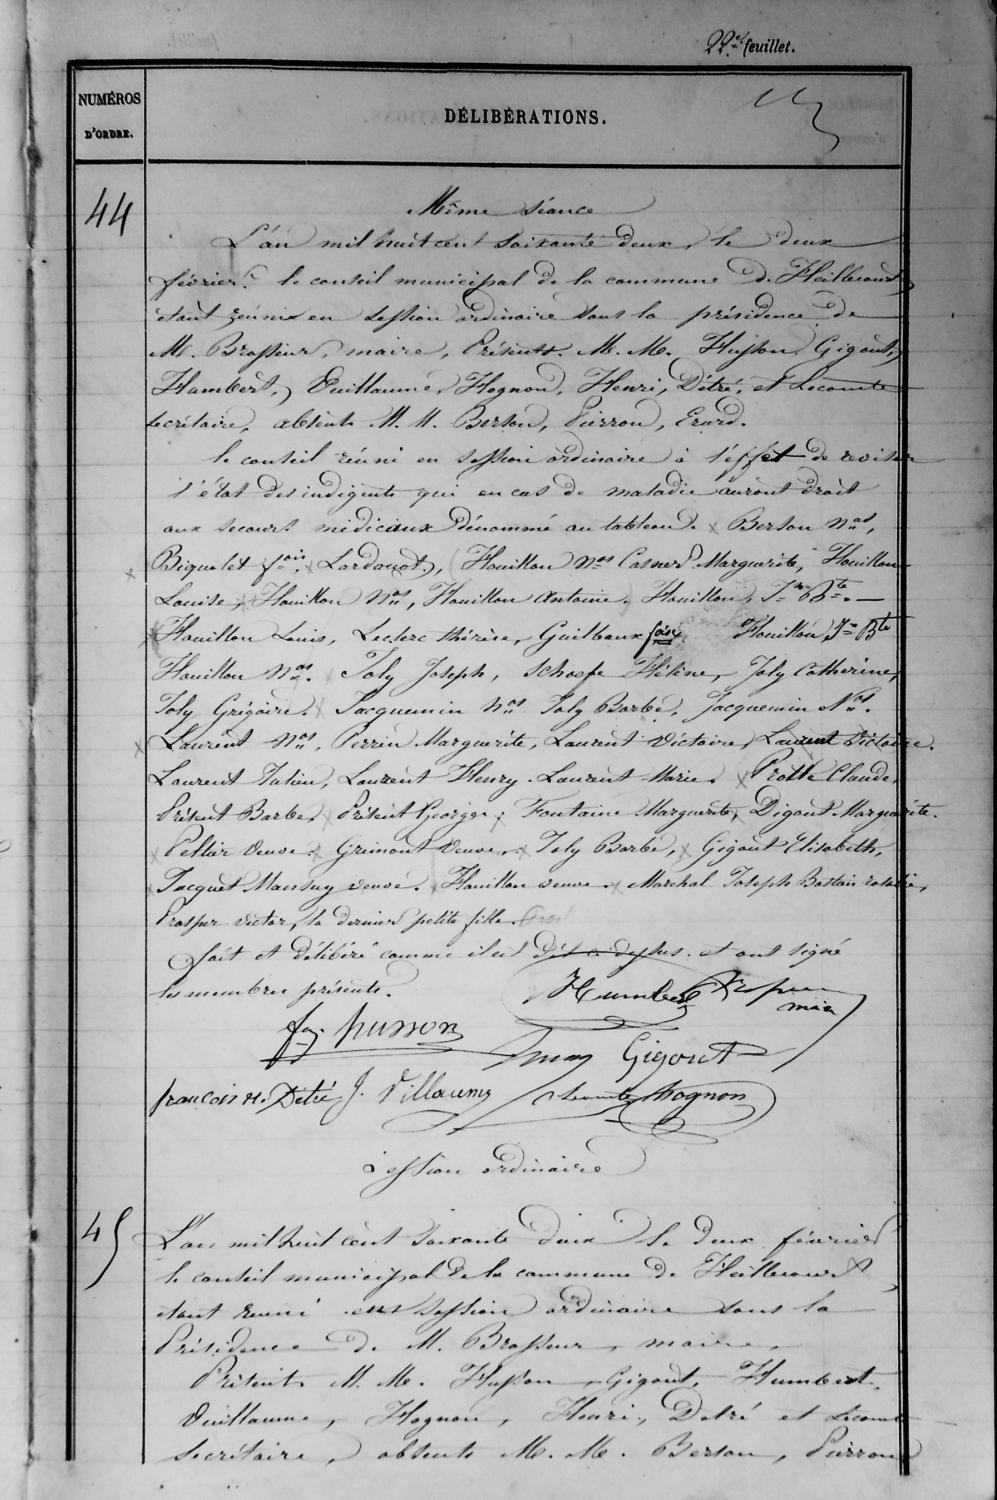 22.e feuillet.
NUMÉROS
D'ORDRE.
DÉLIBÉRATIONS.
44
Même séance
L'an mil huit cent soixante deux, le deux
février. le conseil municipal de la commune de Heillecourt
étant réunis en session ordinaire sous la présidence de
M. Brasseur, maire, Présents. M. M. Husson, Gigout,
Humbert, Vuillaume, Hognon, Henri, Détré, et Lecomte
secrétaire, absents M. M. Berson, Pierron, Erard.
le conseil réuni en session ordinaire à l'effet de reviser
l'état des indigents qui en cas de maladie auront droit
aux secours médicaux dénommé au tableau. Berson Nas,
Biquelet fois. Lardanot, Houillon Nas Casner Marguerite, Houillon
Louise, Houillon Nas, Houillon Antoine. Houillon, Jn Bte. —
Houillon Louis, Leclerc thérèse, Guilbaux fois Houillon Jn Bte
Houillon Nas. Joly Joseph, Schoefe Hélène, Joly Catherine,
Joly Grégoire. Jacquemin Nas Joly Barbe, Jacquemin Nas.
Laurent Nas, Perrin Marguerite, Laurent Victoire, Laurent Victoire.
Laurent Julien, Laurent Henry. Laurent Marie. Protte Claude,
Présent Barbe, Présent George, Fontaine Marguerite, Digout Marguerite.
Peltier veuve. Grimont veuve, Joly Barbe, Gigout Elisabeth,
Jacquet Mansuy veuve. Houillon veuve. Marchal Joseph Bastain rosalie,
Prosper victor, la dernier petite fille.
fait et délibéré comme il est dit ci dessus. et ont signé
les membres présents.
Humbert maire
fs. husson
Henry Gigout
françois H. Détré J. Villaume Lecomte Hognon
Session ordinaire
45
L'an mil huit cent soixante deux le deux février
le conseil municipal de la commune de Heillecourt
étant reuni en session ordinaire sous la
Présidence de M. Brasseur, maire,
Présents M. M. Husson, Gigout, Humbert,
Vuillaume, Hognon, Henri, Detré et Lecomte
secrétaire, absents M. M. Berson, Pierron